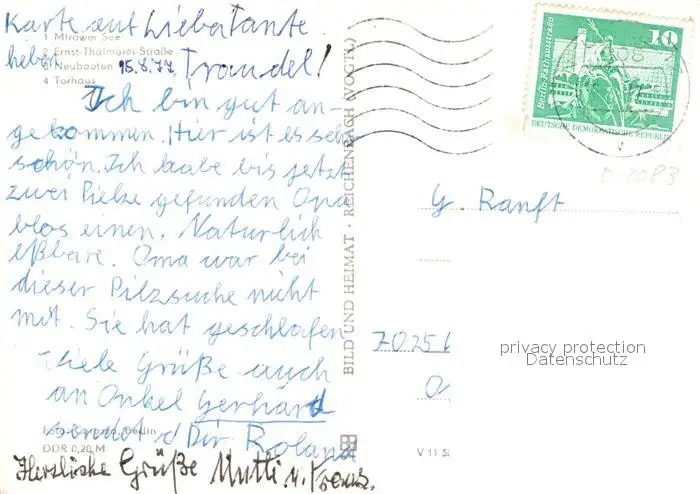 Karte auf Liebe Tante
heben
15.8.77 Traudel!
1 Mirower See
2 Ernst-Thälmann-Straße
3 Neubauten
4 Torhaus
Ich bin gut an-
gekommen. Hier ist es sehr
schön. Ich habe bis jetzt
zwei Pielze gefunden Opa
blos einen. Natürlich
eßbare. Oma war bei
dieser Pilzsuche nicht
mit. Sie hat geschlafen
Viele Grüße auch
an Onkel Gerhard
sendet Dir Roland
Berlin
DDR 0,20 M
Herzliche Grüße Mutti u.
BILD UND HEIMAT · REICHENBACH (VOGTL)
10
Berlin Rathausstraße
DEUTSCHE DEMOKRATISCHE REPUBLIK
G. Ranft
7025
V 11
privacy protection
Datenschutz